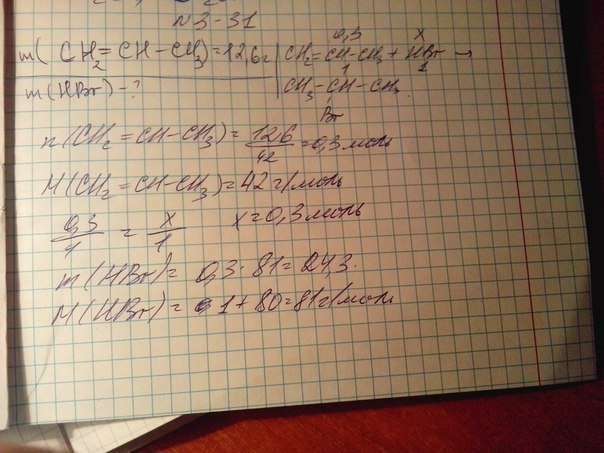 N3-31
m(CH2=CH-CH3)=12,6г
m(HBr)-?
0,3 x
CH2=CH-CH3 + HBr →
1 1
CH3-CH-CH3
Br
n(CH2=CH-CH3)= 12,6/42 =0,3моль
M(CH2=CH-CH3)=42г/моль
0,3/1 = x/1 x=0,3моль
m(HBr)= 0,3·81=24,3.
M(HBr)= 1+80=81г/моль